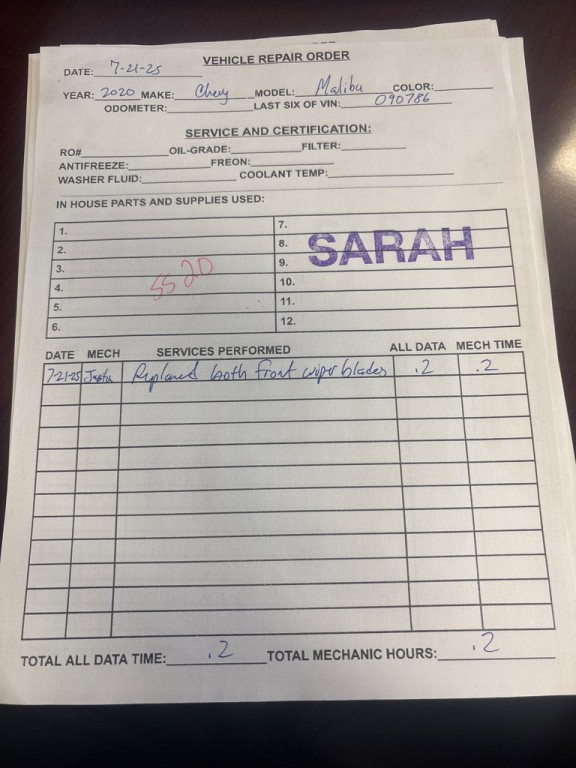 VEHICLE REPAIR ORDER
DATE: 7-21-25
YEAR: 2020 MAKE: Chevy MODEL: Malibu COLOR:
ODOMETER: LAST SIX OF VIN: 090786
SERVICE AND CERTIFICATION:
RO# OIL-GRADE: FILTER:
ANTIFREEZE: FREON:
WASHER FLUID: COOLANT TEMP:
IN HOUSE PARTS AND SUPPLIES USED:
1. 7.
2. 8.
3. 9.
4. 10.
5. 11.
6. 12.
SARAH
5520
DATE MECH SERVICES PERFORMED ALL DATA MECH TIME
7-21-25 Justin Replaced both front wiper blades .2 .2
TOTAL ALL DATA TIME: .2 TOTAL MECHANIC HOURS: .2